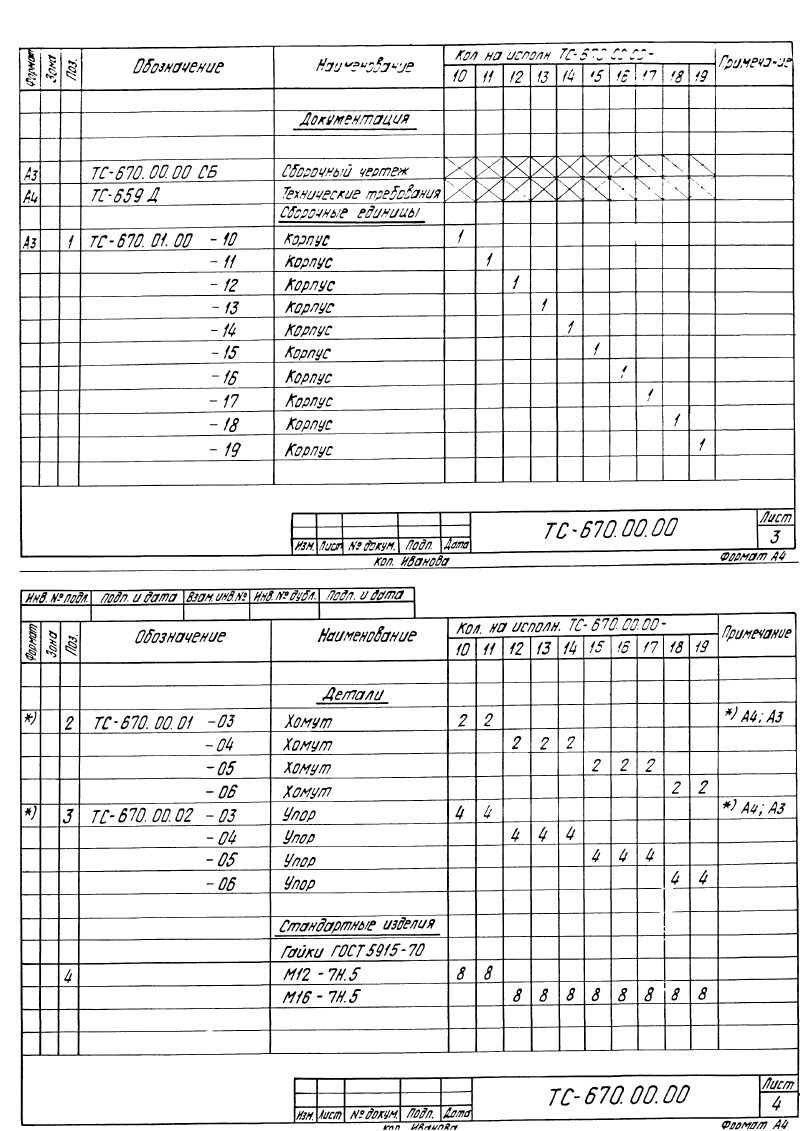 Формат Зона Поз. Обозначение Наименование Кол на исполн ТС-670.00.00- Примечание
10 11 12 13 14 15 16 17 18 19
Документация
А3 ТС-670.00.00 СБ Сборочный чертеж
А4 ТС-659 Д Технические требования
Сборочные единицы
А3 1 ТС-670.01.00 -10 Корпус 1
-11 Корпус 1
-12 Корпус 1
-13 Корпус 1
-14 Корпус 1
-15 Корпус 1
-16 Корпус 1
-17 Корпус 1
-18 Корпус 1
-19 Корпус 1
ТС-670.00.00 Лист
3
Изм. Лист № докум. Подп. Дата
Коп. Иванова Формат А4
Инв. № подл. Подп. и дата Взам. инв. № Инв. № дубл. Подп. и дата
Формат Зона Поз. Обозначение Наименование Кол. на исполн. ТС-670.00.00- Примечание
10 11 12 13 14 15 16 17 18 19
Детали
*) 2 ТС-670.00.01 -03 Хомут 2 2 *) А4; А3
-04 Хомут 2 2 2
-05 Хомут 2 2 2
-06 Хомут 2 2
*) 3 ТС-670.00.02 -03 Упор 4 4 *) А4; А3
-04 Упор 4 4 4
-05 Упор 4 4 4
-06 Упор 4 4
Стандартные изделия
Гайки ГОСТ 5915-70
4 М12 - 7Н.5 8 8
М16 - 7Н.5 8 8 8 8 8 8 8 8
ТС-670.00.00 Лист
4
Изм. Лист № докум. Подп. Дата
Коп. Иванова Формат А4